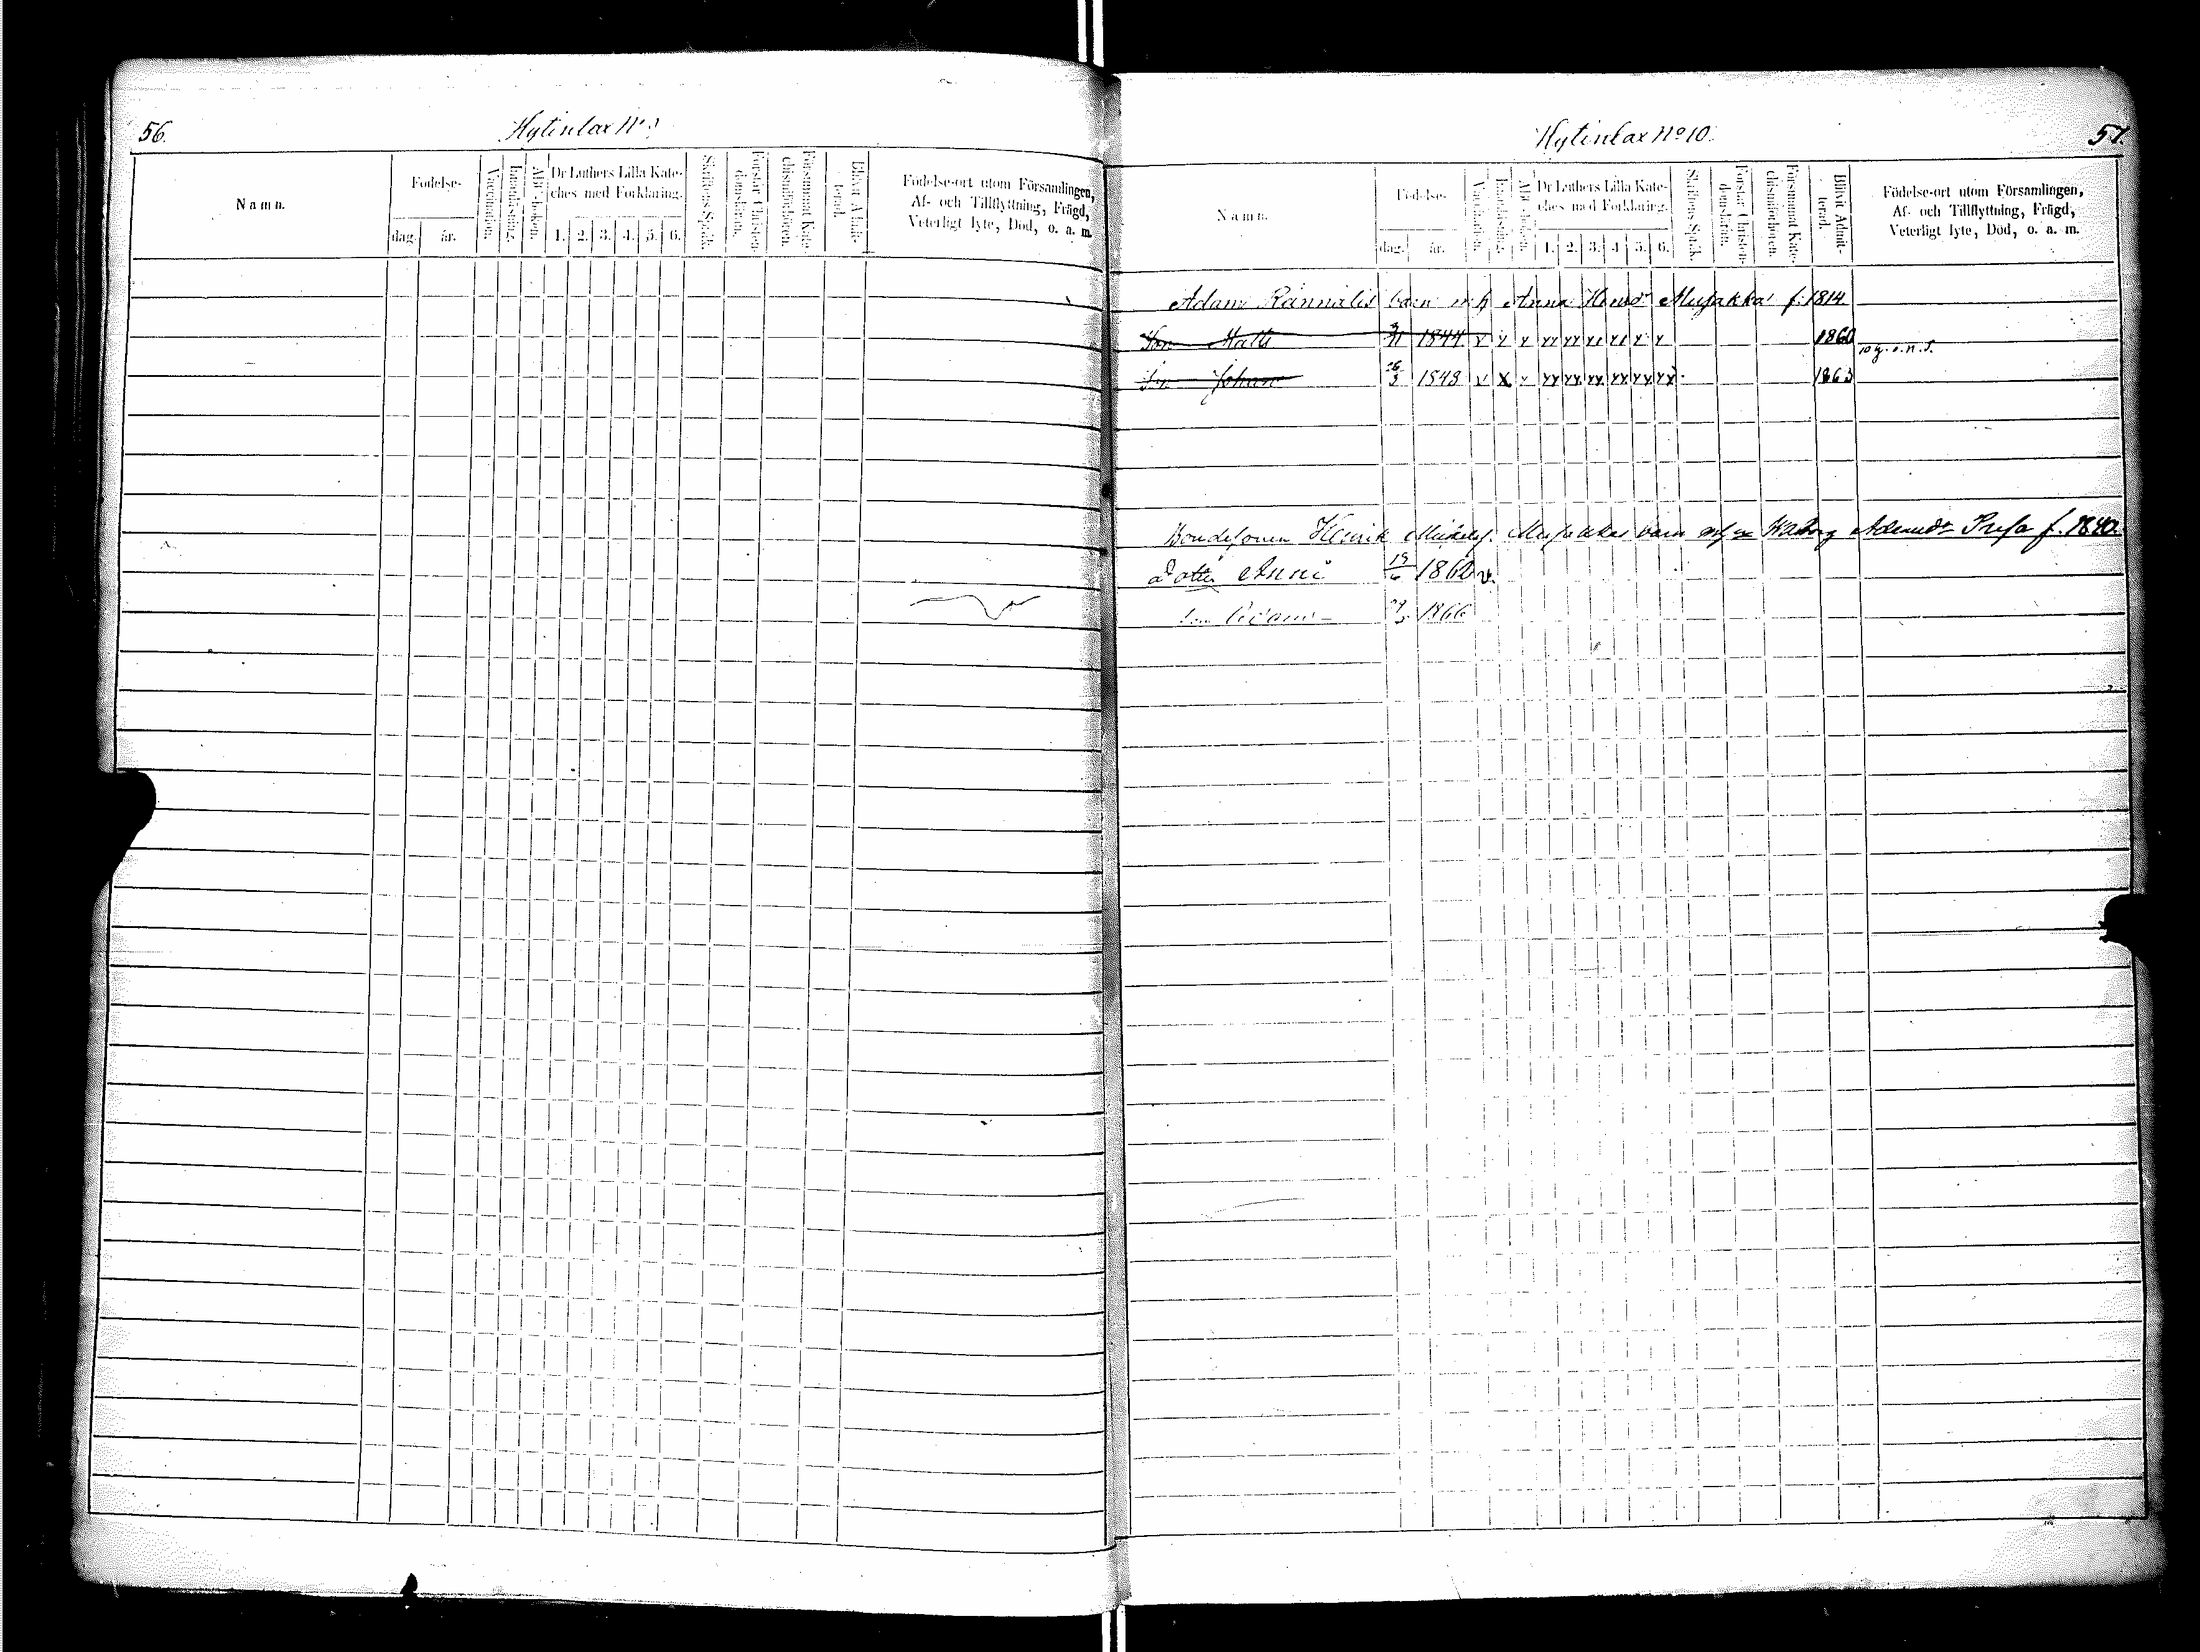 56.
Hytinlax No
Namn.
Födelse-
dag.
år.
Vaccination.
Innanläsning.
Abc-boken.
Dr Luthers Lilla Kate-
ches med Förklaring.
1. 2. 3. 4. 5. 6.
Skriftens Språk.
Förstår Christen-
domsläran.
Försummat Kate-
chismiförhören.
Blivit Admit-
terad.
Födelse-ort utom Församlingen,
Af- och Tillflyttning, Frägd,
Veterligt lyte, Död, o. a. m.
Hytinlax No 10.
57.
Namn.
Födelse-
dag.
år.
Vaccination.
Innanläsning.
Abc-boken.
Dr Luthers Lilla Kate-
ches med Förklaring.
1. 2. 3. 4. 5. 6.
Skriftens Språk.
Förstår Christen-
domsläran.
Försummat Kate-
chismiförhören.
Blivit Admit-
terad.
Födelse-ort utom Församlingen,
Af- och Tillflyttning, Frägd,
Veterligt lyte, Död, o. a. m.
Adam Rännälis barn o h Anna Henrsdr Musakka f. 1814
Son Matts 1844 v x x xx xx xx xx x x 1860
Son Johan 26/3 1848 v x x xx xx xx xx xx xx 1863
Bondesonen Henrik Mickels. Musakkas barn Walborg Adamsdr f. 1840.
Dotter Anni 19/6 1860 v.
Son Adam 1866